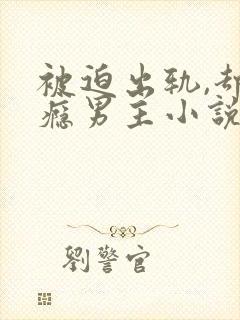 被迫出轨,却
瘾男主小說
劉警官